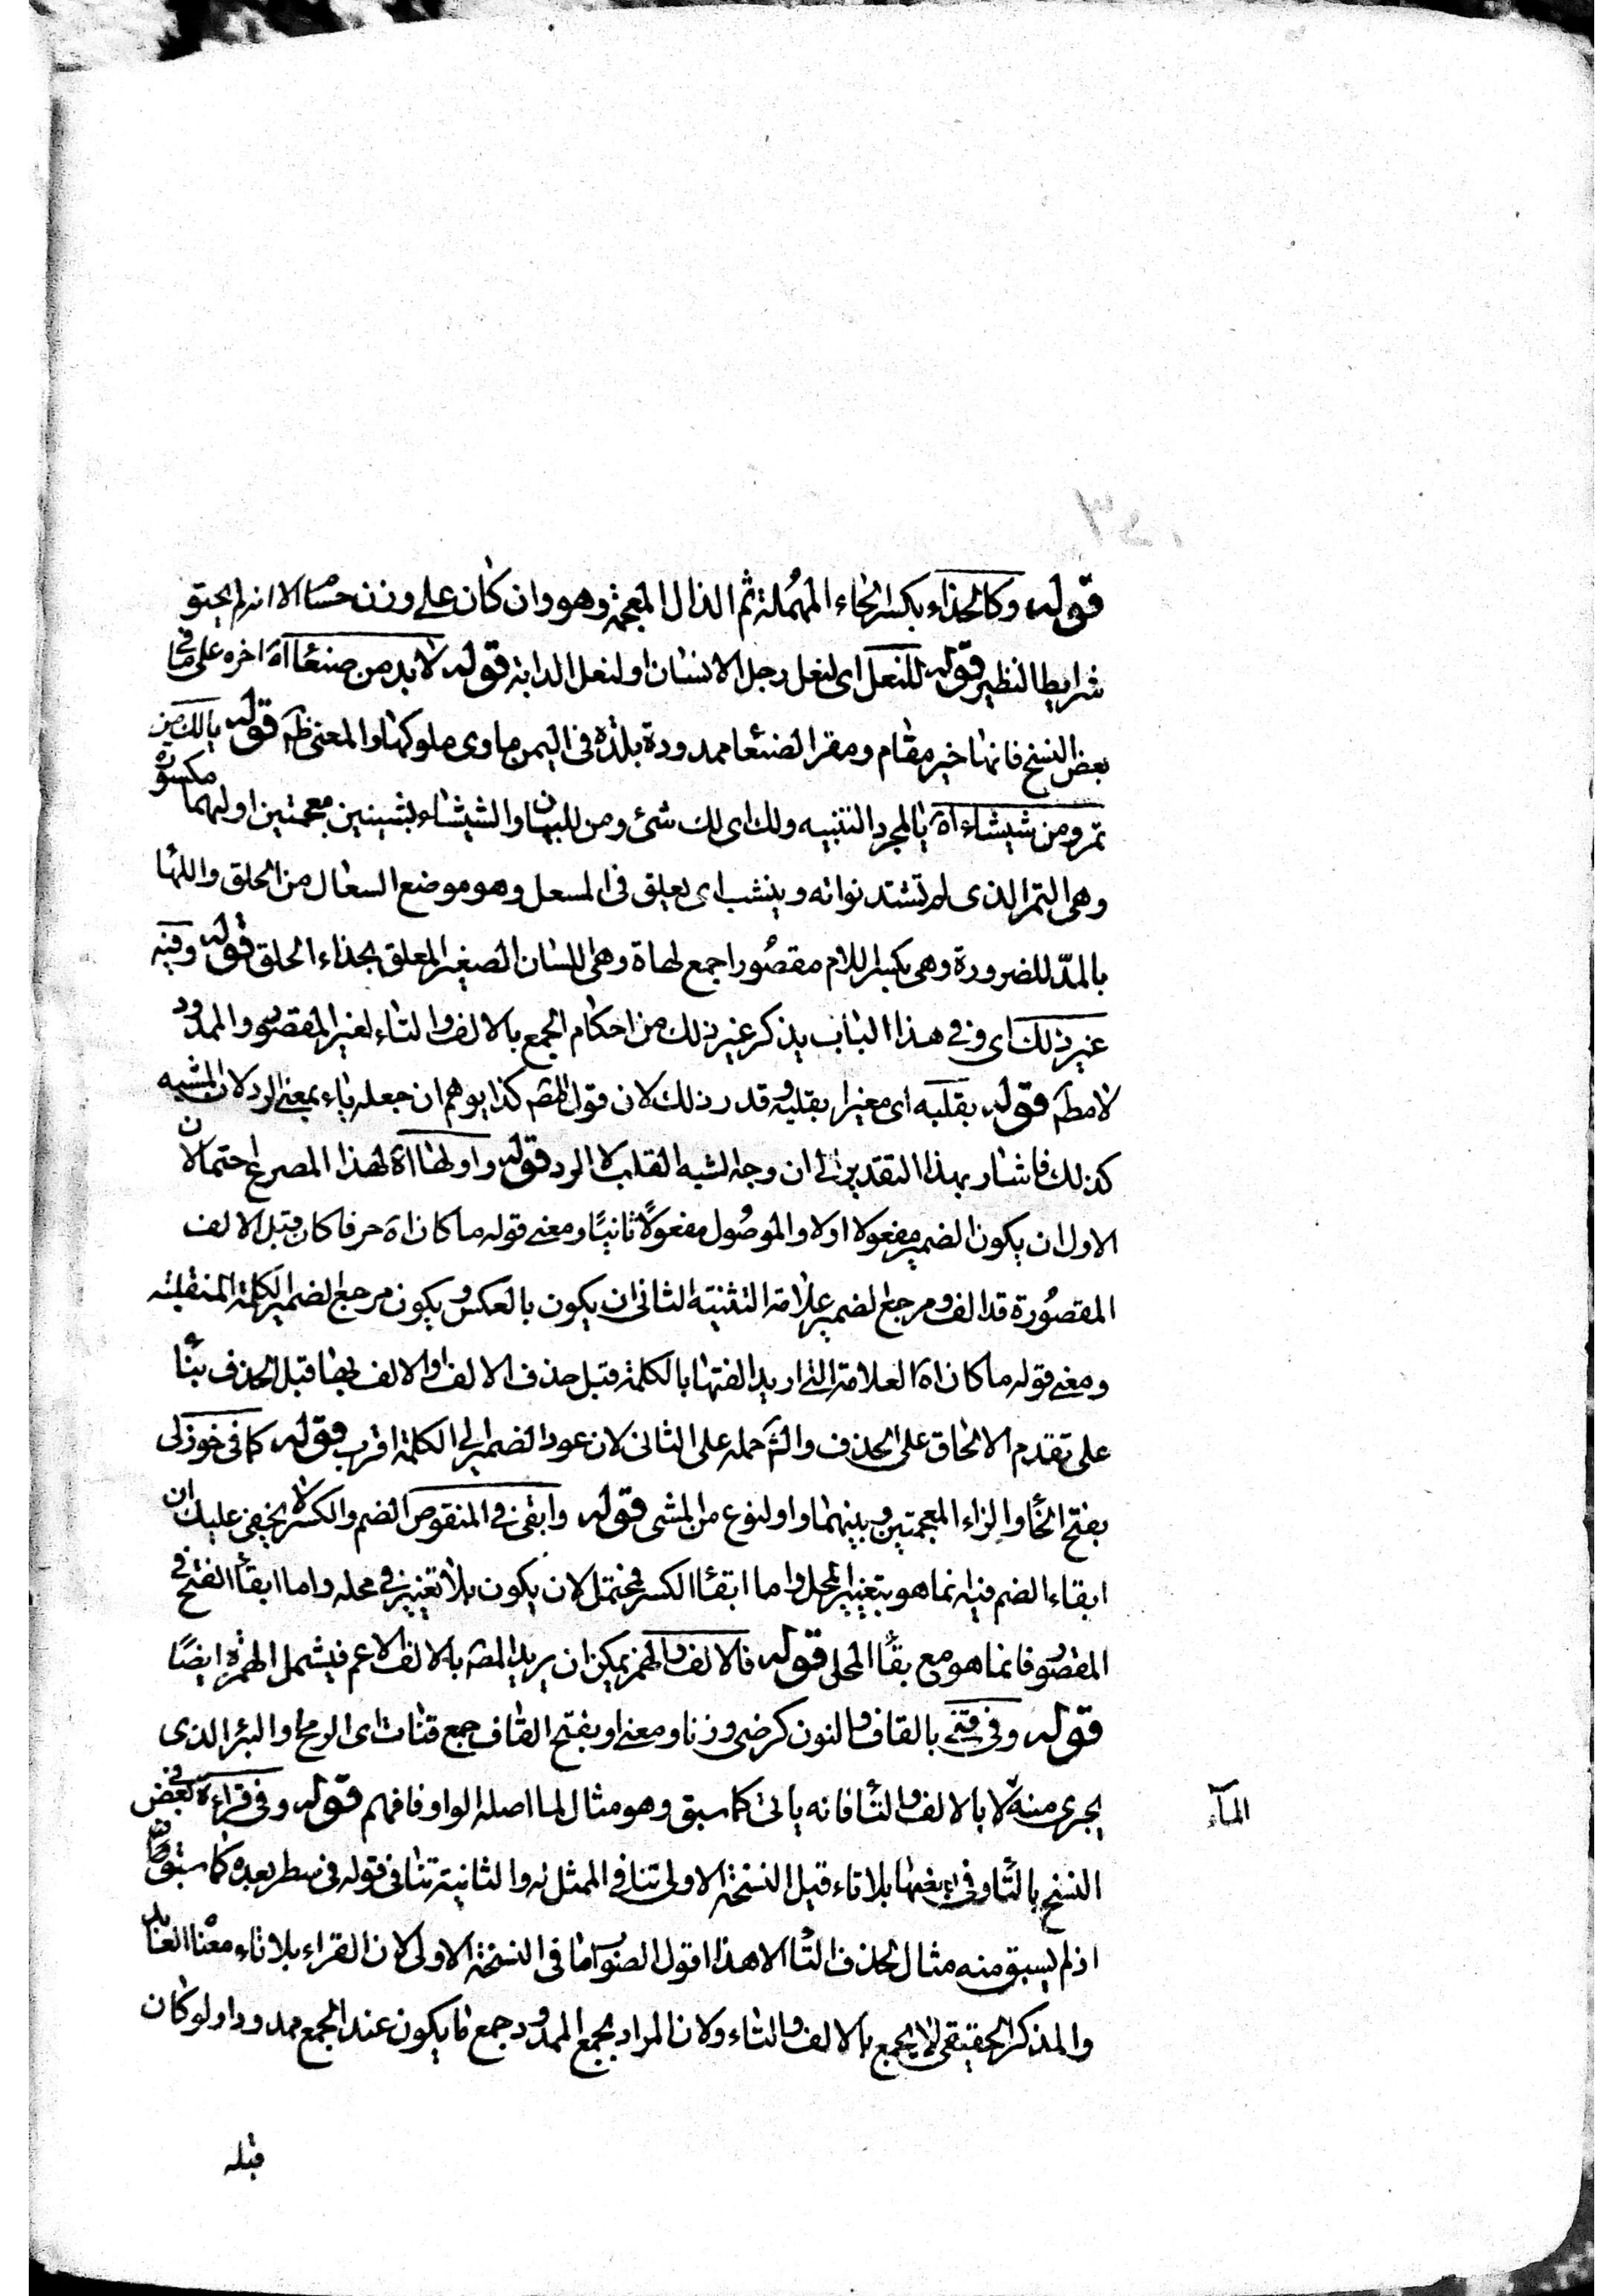 قوله وكالحذاء بكسر الحاء المهملة ثم الذال المعجمة وهو وان كان على وزن حسا الا انه لم يحتو
شرايط النظير قوله للنعل اى لنعل رجل الانسان او لنعل الدابة قوله لا بد من صنعا اه اخره على ما فى
بعض النسخ فانها خير مقام ومقر الصنعا ممدودة بلدة فى اليمن ماوى ملوكها والمعنى ظم قوله يا لك من
تمر ومن شيشاء اه يا لمجرد التنبيه ولك اى لك شئ ومن للبيان والشيشاء بشينين معجمتين اوليهما مكسورة
وهى التمر الذى لم تشتد نواته وينشب اى يعلق فى المسعل وهو موضع السعال من الحلق واللها
بالمدّ للضرورة وهى بكسر اللام مقصورا جمع لهاة وهى اللسان الصغير المعلق بحذاء الحلق قوله وفيه
غير ذلك اى وفى هذا الباب يذكر غير ذلك من احكام الجمع بالالف والتاء لغير المقصور والممدود
لا مطم قوله بقلبه اى مغيرا بقلبه وقدر ذلك لان قول المصم كذا يوهم ان جعله ياء بمعنى الرد لان المشبه
كذلك فاشار بهذا التقدير الى ان وجه الشبه القلب لا الرد قوله واولها اه لهذا المصرع احتمالان
الاول ان يكون الضمير مفعولا اولا والموصول مفعولًا ثانيًا ومعنى قوله ما كان اه حرفا كان قبل الالف
المقصورة قد الف ومرجع الضمير علامة التثنية الثانى ان يكون بالعكس ويكون مرجع الضمير الكلمة المنقلبة
ومعنى قوله ما كان اه العلامة التى اريد الفتها بالكلمة قبل حذف الالف والالف بها قبل الحذف بنًا
على تقدم الالحاق على الحذف والشم حمله على الثانى لان عود الضمير الى الكلمة اقرب قوله كما فى خوزلى
بفتح الخا والزاء المعجمتين وبينهما واو لنوع من المشى قوله وابقى فى المنقوص الضم والكسر لا يخفى عليك ان
ابقاء الضم فيه انما هو بتغيير المحل واما ابقاا الكسر فمحتمل لان يكون بلا تغيير فى محله واما ابقأ الفتح فى
المقصور فانما هو مع بقأ المحل قوله فالالف والهمز يمكن ان يريد المصم بالالف الاعم فيشمل الهمزة ايضًا
قوله وفى قنى بالقاف والنون كرضى وزنا ومعنى او بفتح القاف جمع قنات اى الرمح او البئر الذى
يجرى منه لا بالالف والتأ فانه ياتى كما سبق وهو مثال لما اصله الواو فافهم قوله وفى قراءة فى بعض
المآء
النسخ بالتأ وفى بعضها بلا تاء قيل النسخة الاولى تنافى الممثل له والثانية تنافى قوله فى سطر بعده كما سبق
اذ لم يسبق منه مثال لحذف التأ الا هذا اقول الصواب ما فى النسخة الاولى لان القراء بلا تاء معناه العابد
والمذكر الحقيقى لا يجمع بالالف والتاء ولان المراد بجمع الممدود جمع ما يكون عند الجمع ممدودا ولو كان
قبله